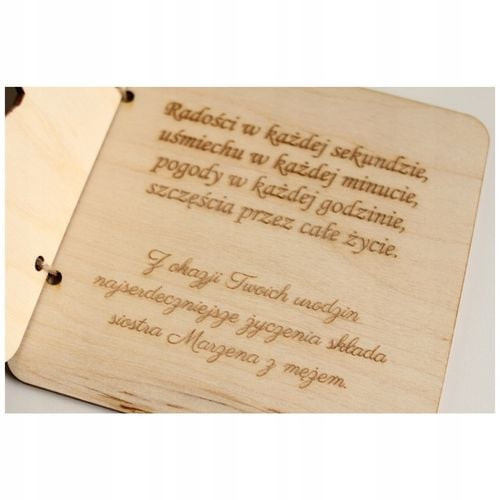 Radości w każdej sekundzie,
uśmiechu w każdej minucie,
pogody w każdej godzinie,
szczęścia przez całe życie.
Z okazji Twoich urodzin
najserdeczniejsze życzenia składa
siostra Marzena z mężem.